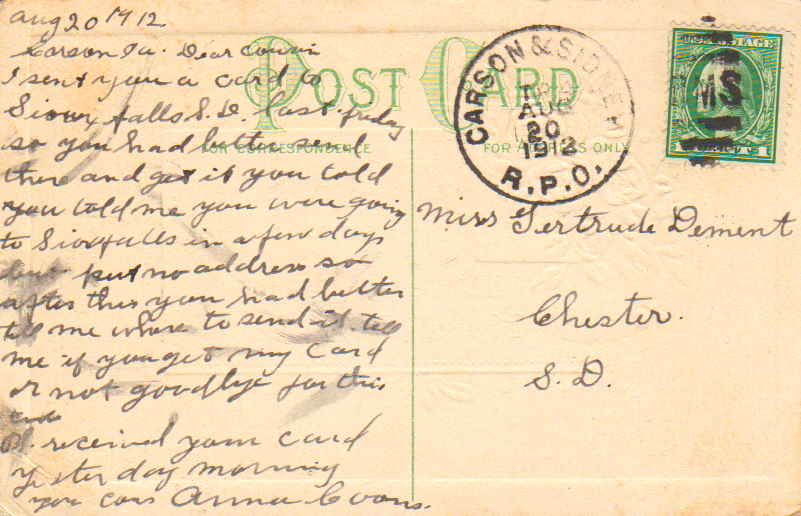 Aug 20 1912.
Carson Ia. Dear Cousin
I sent you a card to
Sioux falls S.D. last friday
so you had better send
there and get it you told
you told me you were going
to Siouxfalls in a few days
but put no address so
after this you had better
tell me where to send it. tell
me if you get my card
or not goodbye for this
received your card
yesterday morning
your cous Anna Evans.
POST CARD
FOR CORRESPONDENCE
FOR ADDRESS ONLY
CARSON & SIOUX
AUG
20
1912
R.P.O.
MS
Miss Gertrude Dement
Chester.
S.D.